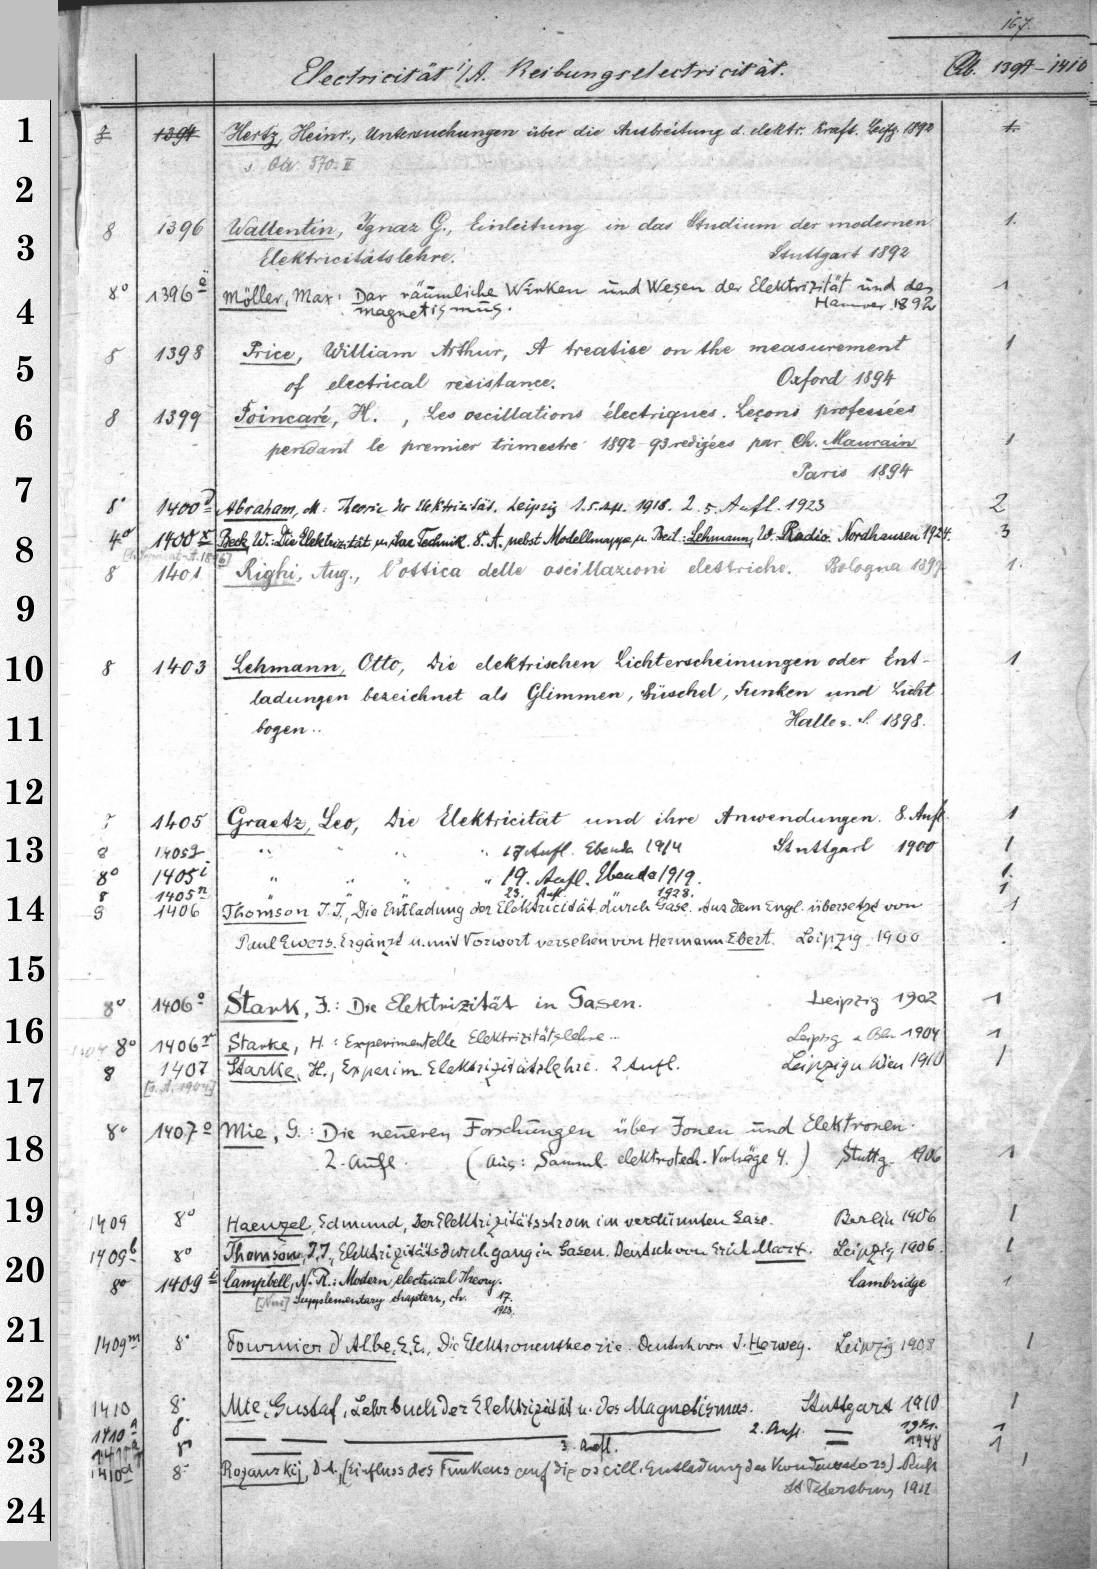 167.
Electricität i/A. Reibungselectricität. Cb. 1394-1410
1 8 1394 Hertz, Heinr., Untersuchungen über die Ausbreitung d. elektr. Kraft. Leipz. 1892 1.
s. 570. II
2
3 8 1396 Wallentin, Ignaz G., Einleitung in das Studium der modernen 1.
Elektricitätslehre. Stuttgart 1892
8° 1396 Möller, Max: Das räumliche Wirken und Wesen der Elektrizität und des 1
4 Magnetismus. Hannover. 1892
5 8 1398 Price, William Arthur, A treatise on the measurement 1
of electrical resistance. Oxford 1894
6 8 1399 Poincaré, H. , Les oscillations électriques. Leçons professées
pendant le premier trimestre 1892-93 redigées par Ch. Maurain 1
Paris 1894
7
8° 1400 d Abraham, M: Theorie der Elektrizität. Leipzig 1918. 2. 5. Aufl. 1923 2
8 4° 1400 x Beck, W.: Die Elektrizität u. ihre Technik. 8. A. nebst Modellmappe u. Beil.: Lehmann, W. Radio. Nordhausen 1924. 3
8 1401 Righi, Aug., L'ottica delle oscillazioni elettriche. Bologna 1897 1.
9
10 8 1403 Lehmann, Otto, Die elektrischen Lichterscheinungen oder Ent- 1
ladungen bezeichnet als Glimmen, Büschel, Funken und Licht
11 bogen.. Halle a. S. 1898.
12
1405 Graetz, Leo, Die Elektricität und ihre Anwendungen. 8. Aufl. 1
13 8 1405g " " " " 17 Aufl. Ebenda 1914 Stuttgart 1900 1
8° 1405 i " " " " 19. Aufl. Ebenda 1919. 1.
8 1405 n " " " 23. Aufl. " 1928. 1
14 8 1406 Thomson J. J., Die Entladung der Elektricität durch Gase. Aus dem Engl. übersetzt von 1
Paul Ewers. Ergänzt u. mit Vorwort versehen von Hermann Ebert. Leipzig 1900
15
8° 1406 o Stark, J.: Die Elektrizität in Gasen. Leipzig 1902 1
16 8° 1406 r Starke, H.: Experimentelle Elektrizitätslehre... Leipzig u. Bln 1904 1
8 1407 Starke, H., Experim. Elektrizitätslehre. 2 Aufl. Leipzig u Wien 1910 1
17
8° 1407 a Mie, G.: Die neueren Forschungen über Jonen und Elektronen.
18 2. Aufl. (Aus: Samml. elektrotech. Vorträge 4.) Stuttg. 1906 1
19 1409 8° Haenzel, Edmund, Der Elektrizitätsstrom im verdünnten Gase. Berlin 1906 1
1409 b 8° Thomson, J.J., Elektrizitätsdurchgang in Gasen. Deutsch von Erich Marx. Leipzig 1906. 1
20 8° 1409 i Campbell, N. R.: Modern electrical Theory. Cambridge 1
Supplementary chapters, ch. 17.
1923.
21 1409 m 8° Fournier d'Albe, E.E., Die Elektronentheorie. Deutsch von J. Herweg. Leipzig 1908 1
22 1410 8° Mie, Gustaf, Lehrbuch der Elektrizität u. des Magnetismus. Stuttgart 1910 1
1410 a 8° 2. Aufl. 1941. 1
23 8° 3. Aufl. 1948 1
1410 d 8° Rožanskij, D. A., (Einfluss des Funkens auf die oscill. Entladung des Kondensators) Russ
St Petersburg 1911 1
24